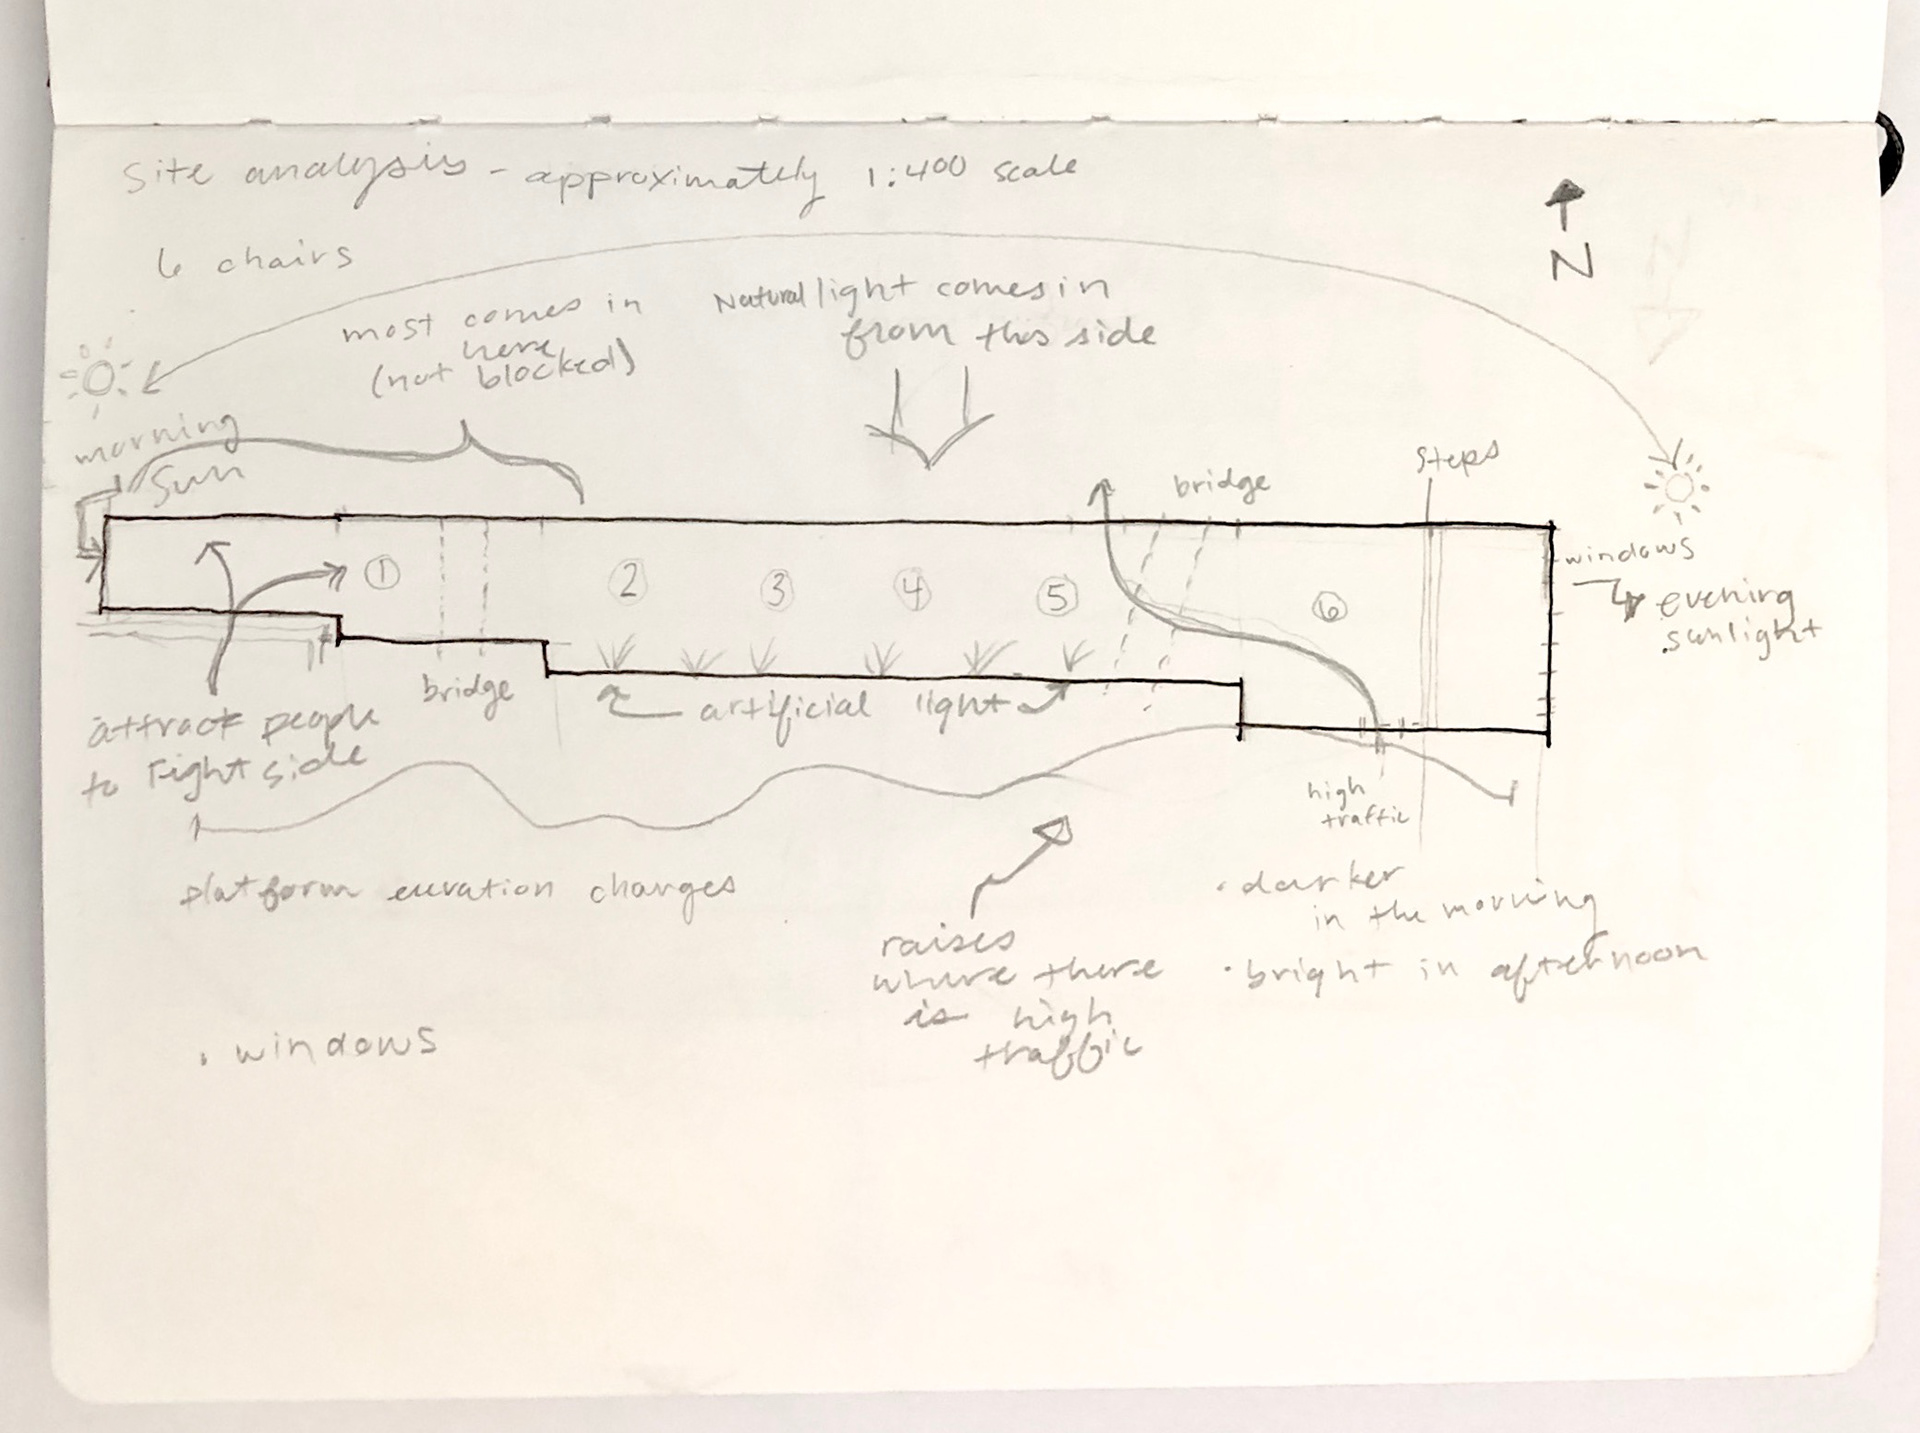 Site analysis - approximately 1:400 scale
N
6 chairs
most comes in
here
(not blocked)
Natural light comes in
from this side
morning
sun
bridge
steps
windows
evening
sunlight
1
2
3
4
5
6
bridge
artificial light
attract people
to right side
high
traffic
platform elevation changes
raises
where there
is high
traffic
• darker
in the morning
• bright in afternoon
• windows